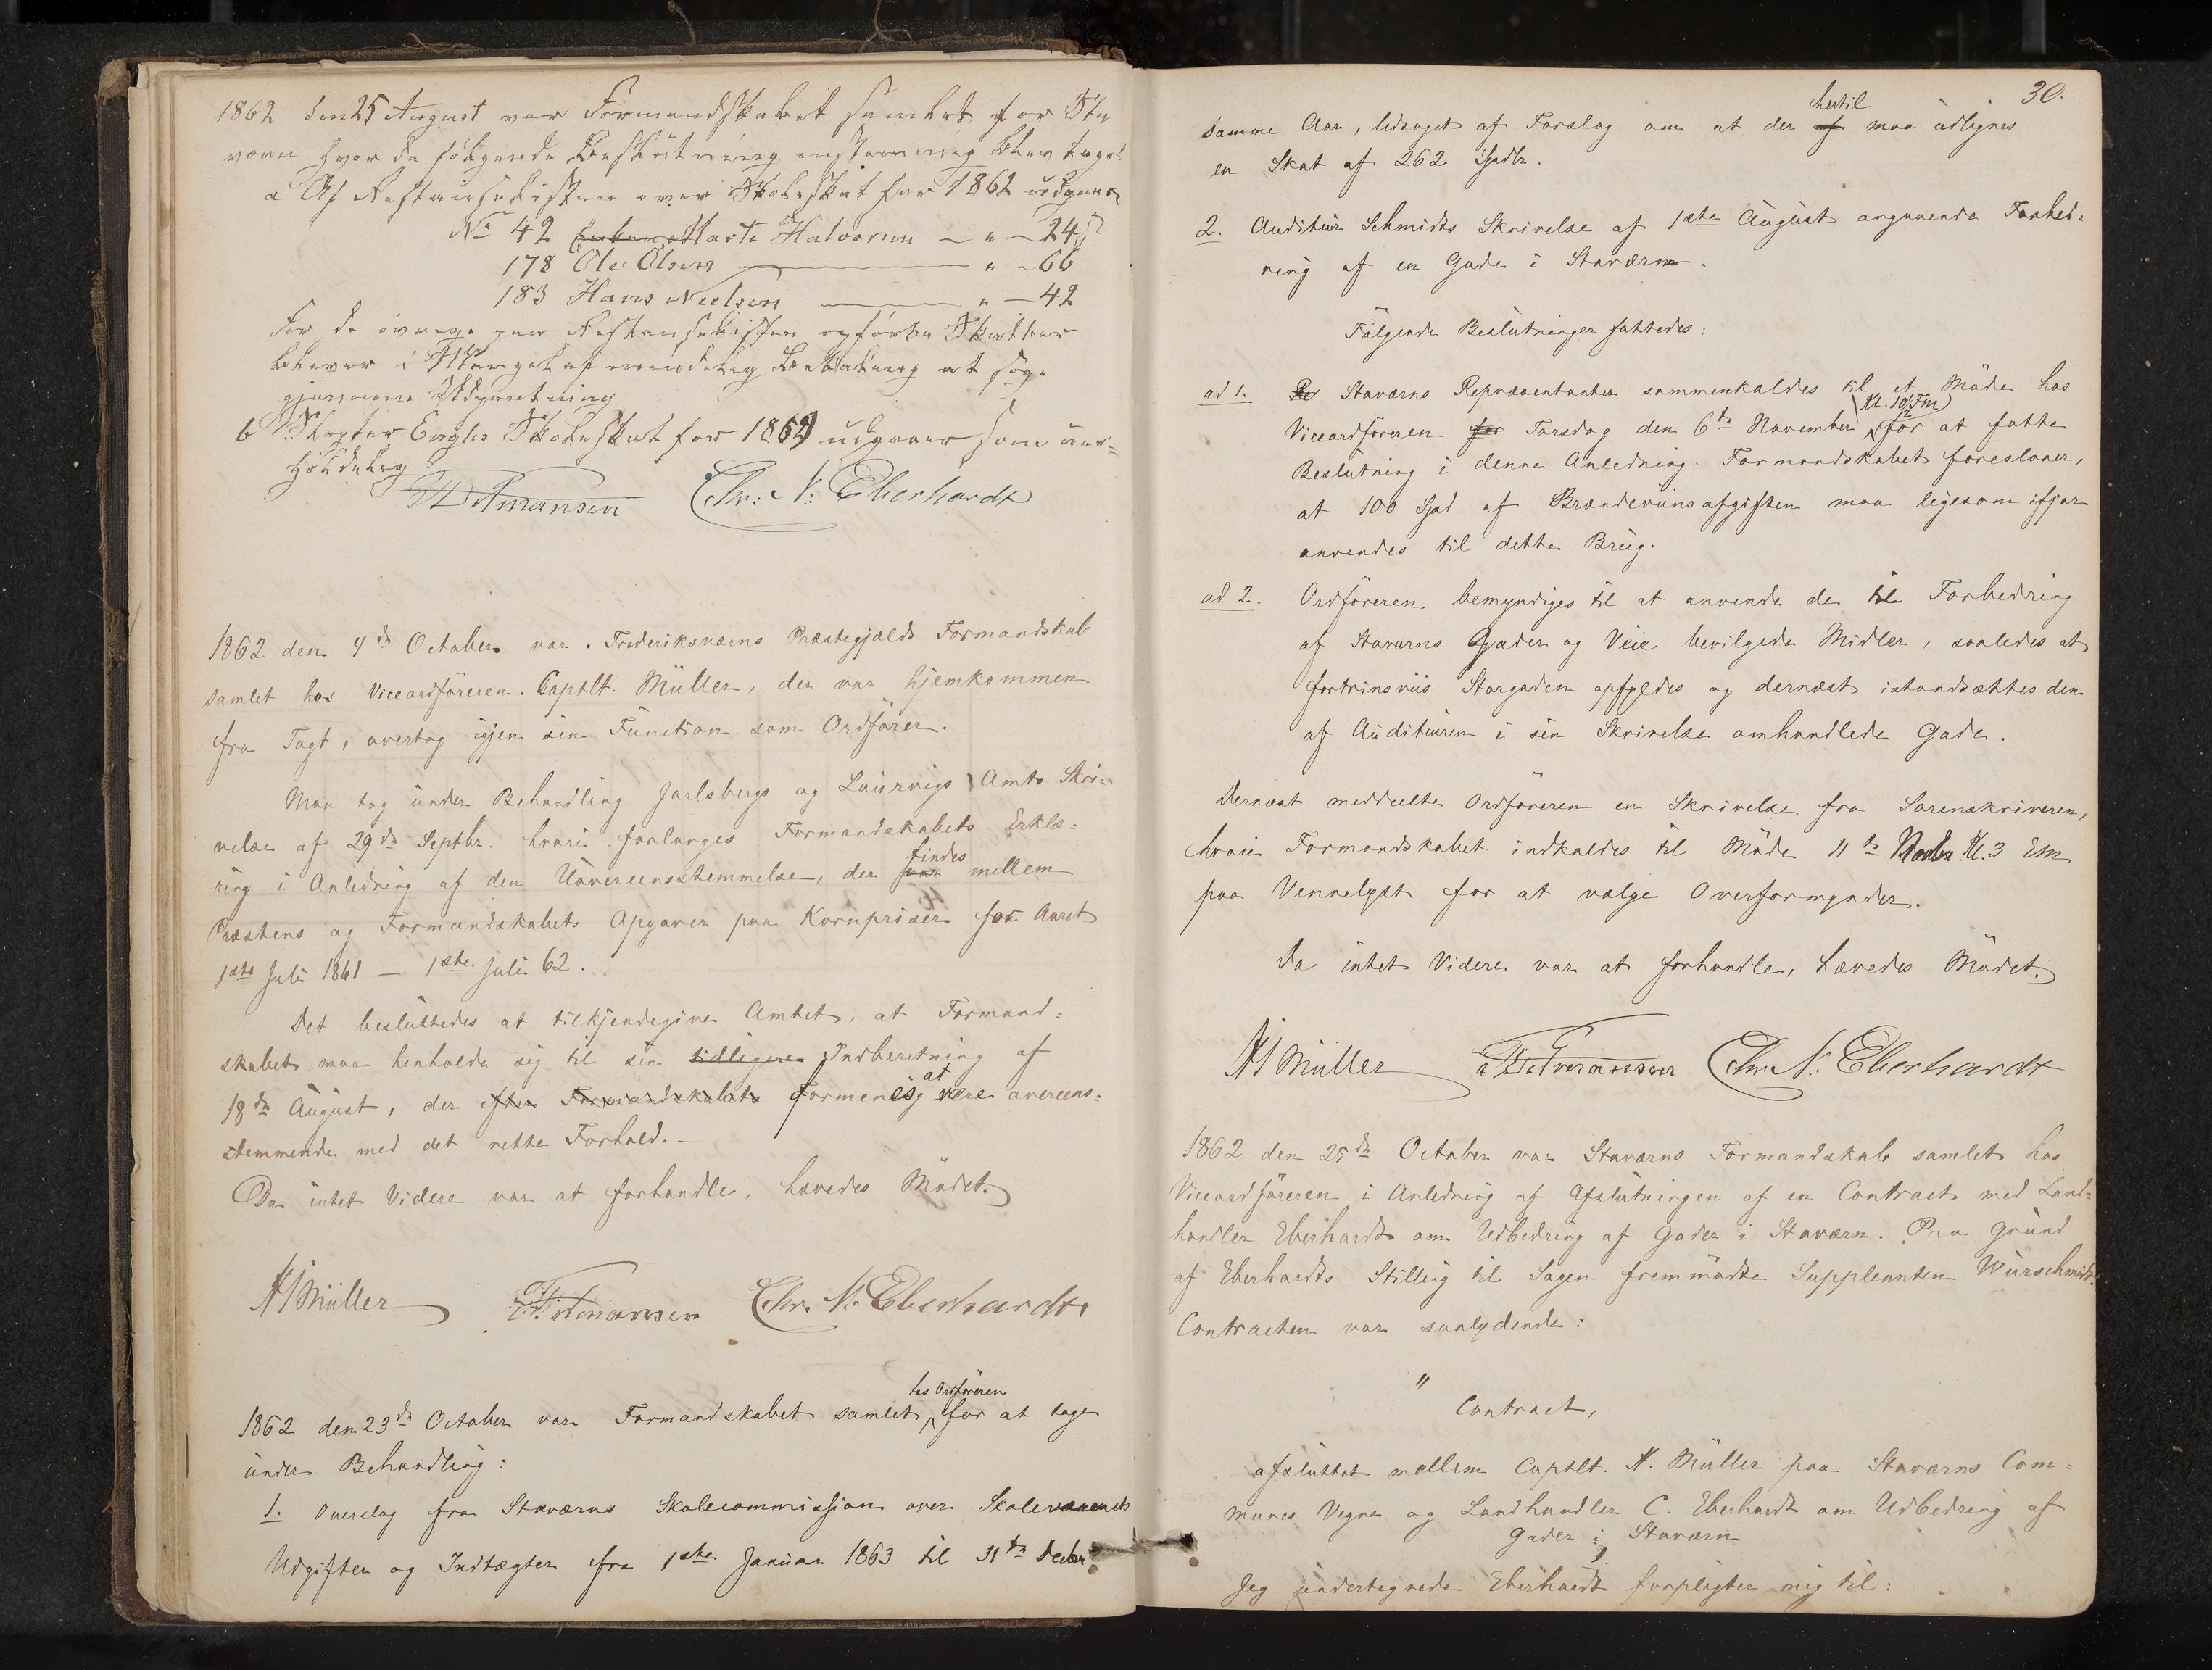 1862 den 25 August var Formandskabet samlet for Sta
værn hvor da følgende Beslutning blev tage
a Af Restanselisten over Skoleskat for 1862 udgaaer
No 42 Marte Halvorsen — " — 24 s
178 Ole Olsen — " — 66
183 Hans Neelsen — " — 42
for de øvrige paa Restanselisten opførte Skatter
bliver i Mangel af mindelig Betaling at søge
gjennem Udpantning
b Enghs Skoleskat for 1862 udgaaer som uer-
holdelig
Chr: N: Eberhardt
1862 den 4de October var Frederiksværns Præstegjælds Formandskab
samlet hos Viceordföreren. Captlt. Müller, der var hjemkommen
fra Togt, overtog igjen sin Function som Ordförer.
Man tog under Behandling Jarlsbergs og Laurvigs Amts Skri-
velse af 29de Septbr. hvori forlanges Formandskabets Erklæ-
ring i Anledning af den Uovereensstemmelse, der findes mellem
Præstens og Formandskabets Opgaver paa Kornpriser for Aaret
1ste Juli 1861 — 1ste Juli 62.
Det besluttedes at tilkjendegive Amtet, at Formand-
skabet maa henholde sig til sin tidligere Indberetning af
18de August, der efter Formandskabets formenes at være overeens-
stemmende med det rette Forhold. –
Da intet Videre var at forhandle, hævedes Mödet.
Müller Chr. N. Eberhardt
hos Ordföreren
1862 den 23de October var Formandskabet samlet, for at tage
under Behandling:
1. Overslag fra Staværns Skolecommission over Skolevæsenets
Udgifter og Indtægter fra 1ste Januar 1863 til 31te Decbr
30.
hertil
samme Aar, ledsaget af Forslag om at der af maa udlignes
en Skat af 262 Spdlr.
2. Auditeur Schmidts Skrivelse af 1ste August angaaende Forbed-
ring af en Gade i Staværn.
Fölgende Beslutninger fattedes:
ad 1. Staværns Repræsentanter sammenkaldes til et Möde hos
Kl. 10½ Fm
Viceordföreren for Torsdag den 6te November for at fatte
Beslutning i denne Anledning. Formandskabet foreslaaer,
at 100 Spd af Brændeviinsafgiften maa ligesom ifjor
anvendes til dette Brug.
ad 2. Ordföreren bemyndiges til at anvende de til Forbedring
af Staværns Gader og Veie bevilgede Midler, saaledes at
fortrinsviis Storgaden opfyldes og dernæst istandsættes den
af Auditeuren i sin Skrivelse omhandlede Gade.
Dernæst meddeelte Ordföreren en Skrivelse fra Sorenskriveren,
hvori Formandskabet indkaldes til Möde 11te Novbr. Kl. 3 Em
paa Vennelyst for at vælge Overformynder.
Da intet Videre var at forhandle, hævedes Mödet.
Müller Chr. N. Eberhardt
1862 den 25de October var Staværns Formandskab samlet hos
Viceordföreren i Anledning af Afslutningen af en Contract med Land-
handler Eberhardt om Udbedring af Gader i Staværn. Paa Grund
af Eberhardts Stilling til Sagen fremmödte Suppleanten Würschmidt.
Contracten var saalydende:
"
Contract,
afsluttet mellem Captlt. N. Müller paa Staværns Com-
munes Vegne og Landhandler C. Eberhardt om Udbedring af
Gader i Staværn
1.
Jeg undertegnede Eberhardt forpligter mig til: